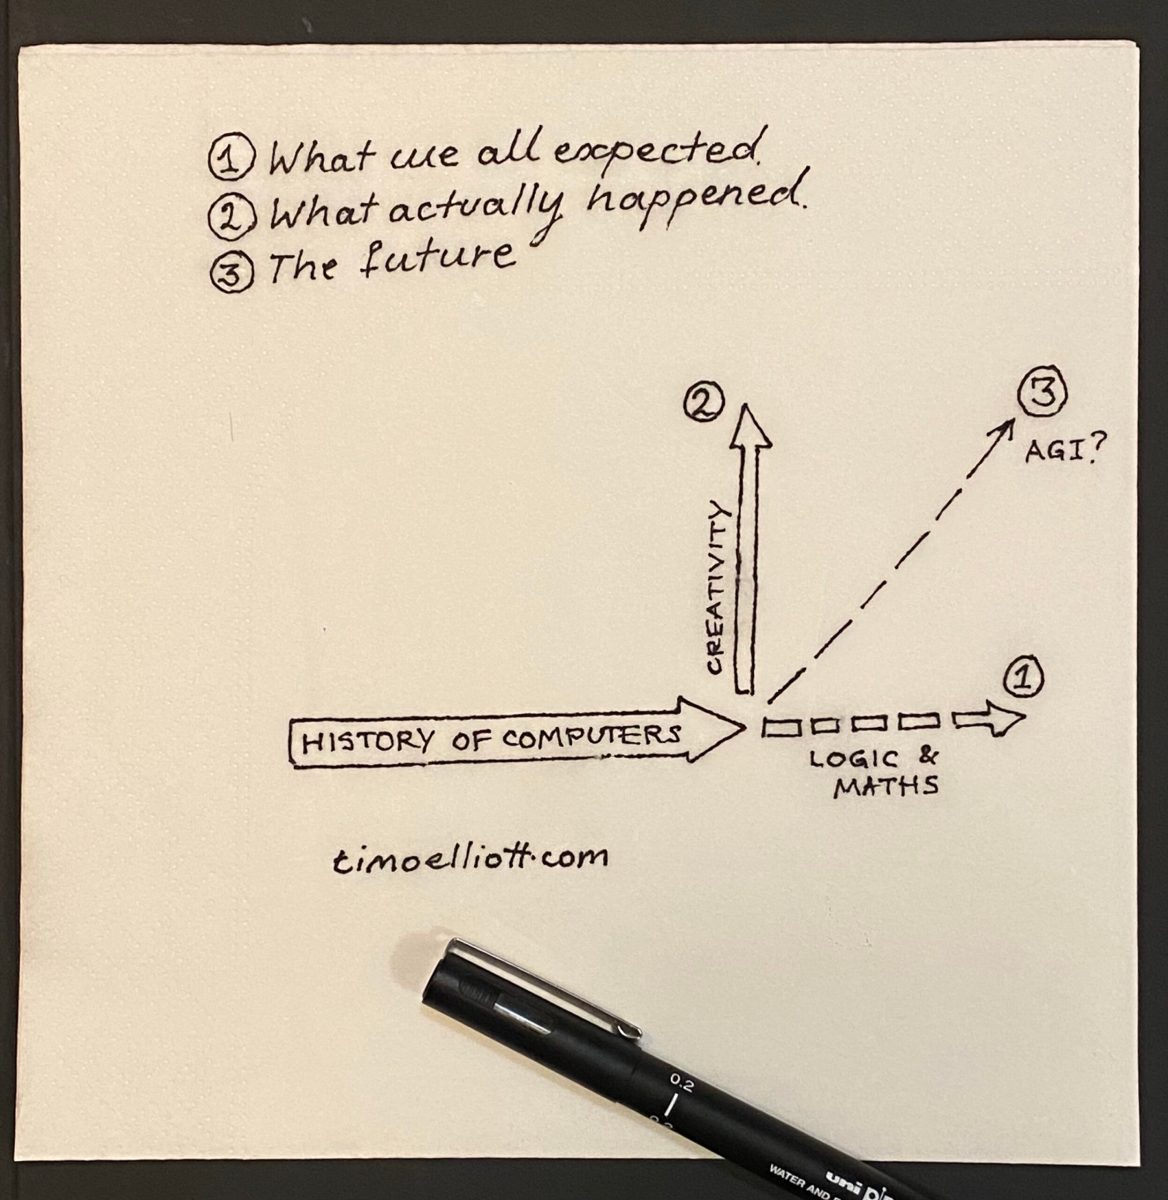 ① What we all expected.
② What actually happened.
③ The future
②
③
AGI?
CREATIVITY
①
HISTORY OF COMPUTERS
LOGIC &
MATHS
timoelliott.com
0.2
WATER AND
uni